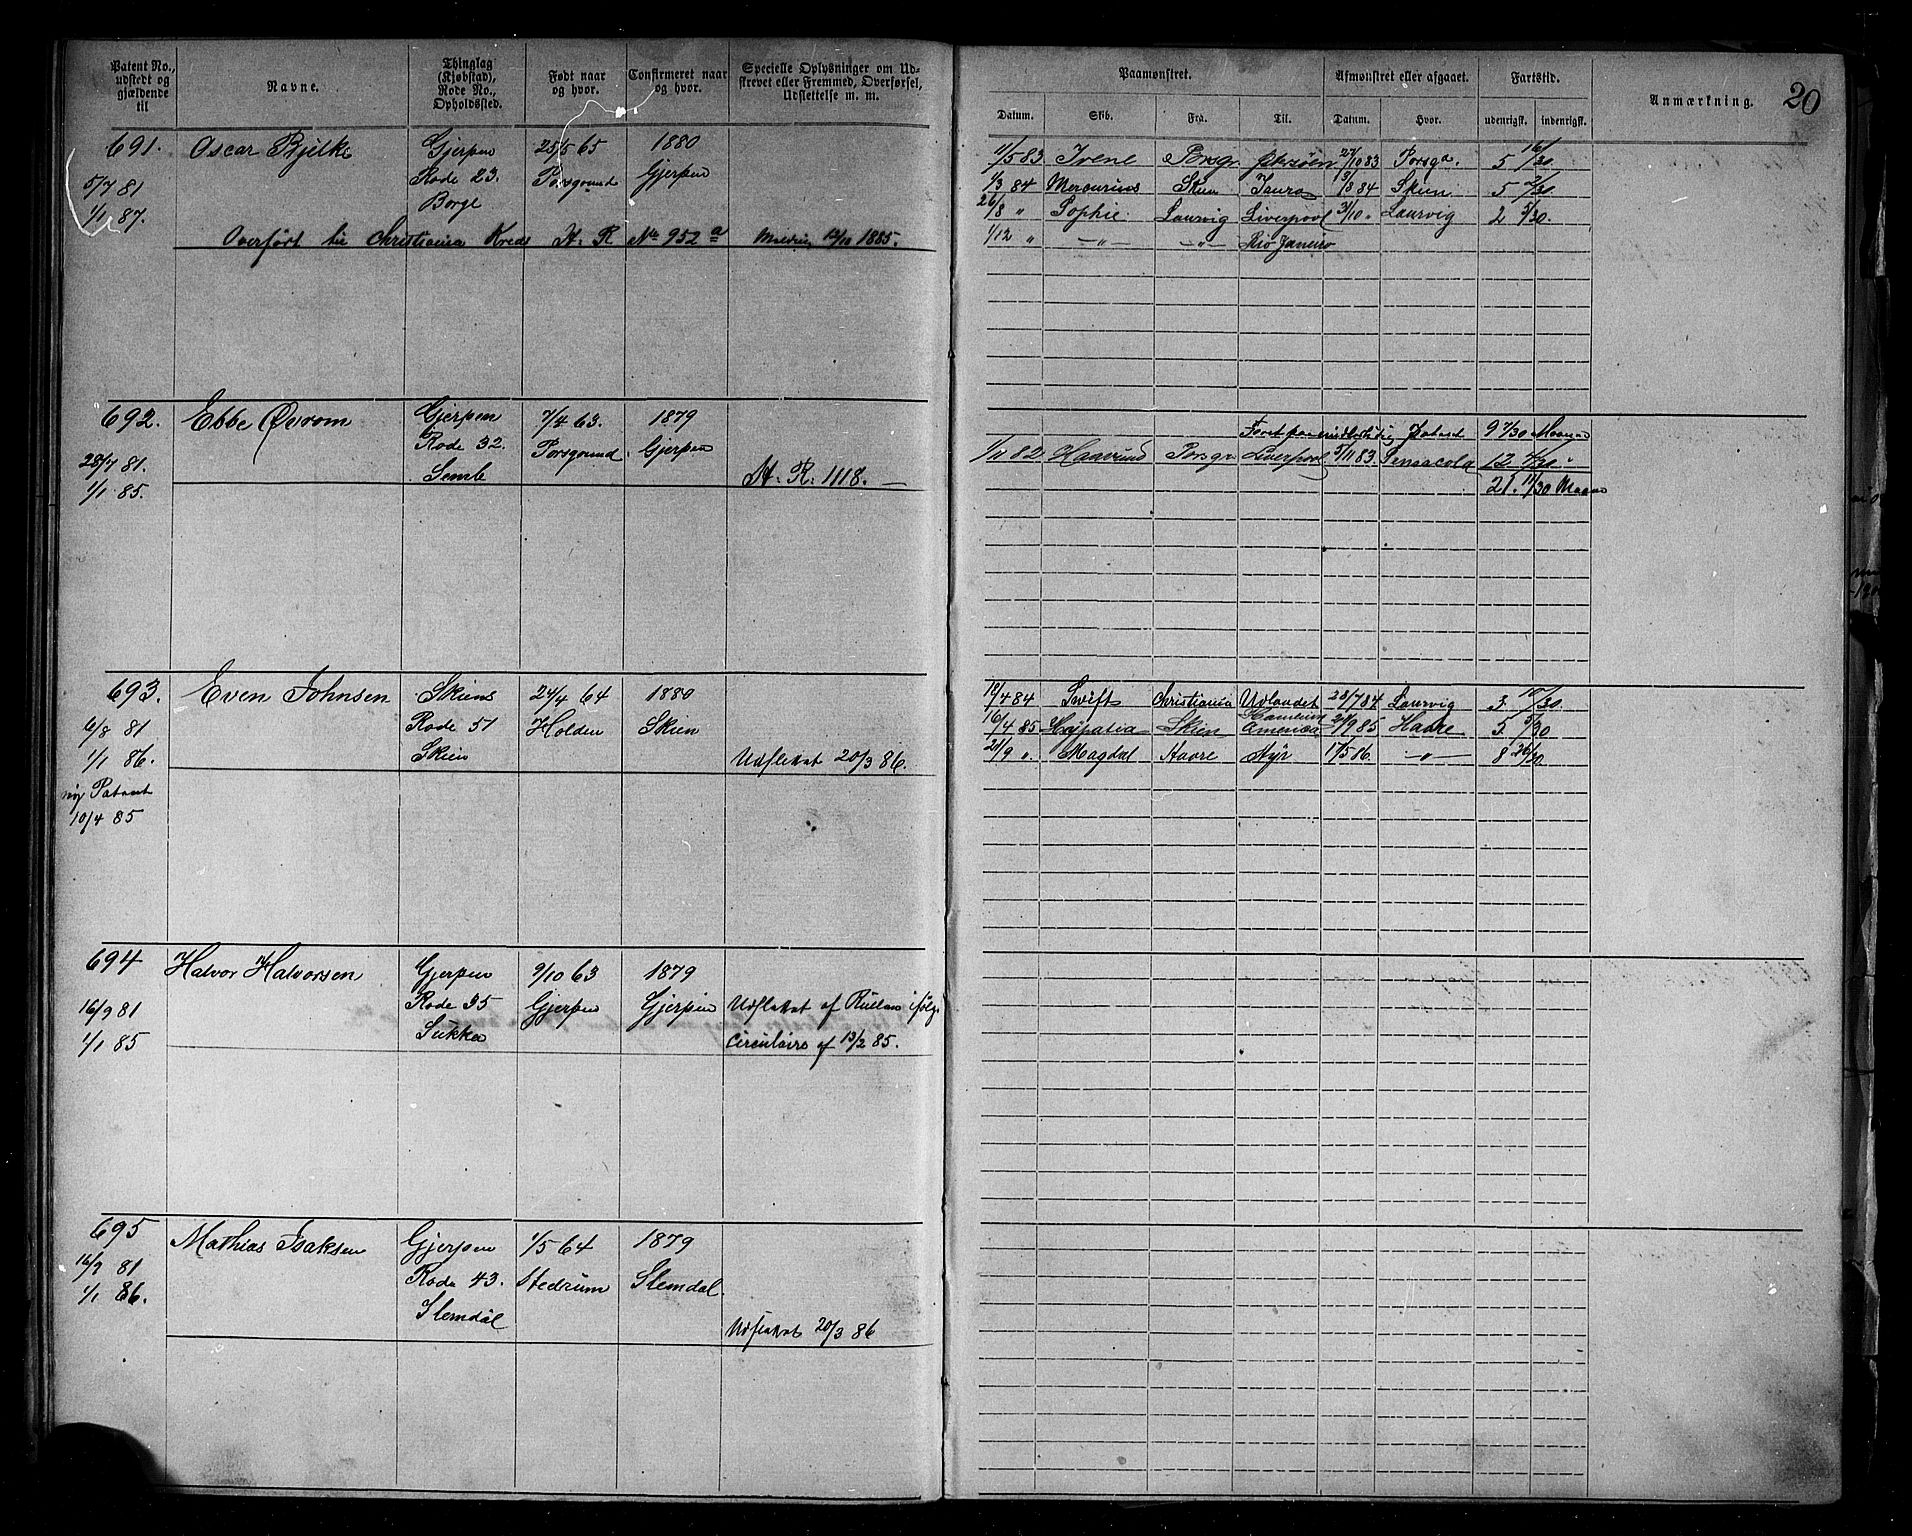 Patent No., udstedt og gjældende til
Navne.
Thinglag (Kjøbstad), Rode No., Opholdssted.
Født naar og hvor.
Confirmeret naar og hvor.
Specielle Oplysninger om Udskrevet eller Fremmed, Overførsel, Udslettelse m. m.
Paamønstret.
Afmønstret eller afgaaet.
Fartstid.
Anmærkning.
20
Datum. Skib. Fra. Til. Datum. Hvor. udenrigsk. indenrigsk.
691. Oscar Bjelke Gjerpen 25/5 65 1880
5/7 81 Rode 23. Porsgrund Gjerpen
1/1 87. Borge
Overført til Christiania Kreds H. R. No 952 a Melding 12/10 1885.
11/5 83 Irene Porsgr 27/10 83 Porsgr. 5 16/30
1/3 84 Mercurius Skien 84 Skien 5 2/30
26/8 " Sophie Laurvig Liverpool 31/10 " Laurvig 2 5/30
1/12 " —"— —"— Rio Janeiro
692. Ebbe Øvrom Gjerpen 7/4 63. 1879
28/7 81. Rode 32. Porsgrund Gjerpen
1/1 85. Semb H. R. 1118. —
Patent 9 7/30 Maaned
1/11 82 Porsgr. Liverpool 5/11 83. Pensacola 12 4/30 "
21. 11/30 Maaned
693. Even Johnsen Skiens 24/4 64 1880
6/8 81 Rode 51 Holden Skien
1/1 86. Skien Udslettet 20/3 86.
ny Patent
10/4 85
19/4 84 Swift Christiania Udlandet 28/7 84 Laurvig 3. 10/30.
16/4 85 Hypatia Skien America 21/9 85 Havre 5. 5/30
21/9 ". Magdal Havre Ayr 17/5 86. —"— 8 26/30
694 Halvor Halvorsen Gjerpen 9/10 63 1879
16/9 81 Rode 35 Gjerpen Gjerpen Udslettet af Rullen ifølge
1/1 85 Sukke Circulaire af 13/2 85.
695 Mathias Isaksen Gjerpen 1/5 64 1879
16/9 81 Rode 43. Hedrum Slemdal.
1/1 86. Slemdal
Udslettet 20/3 86